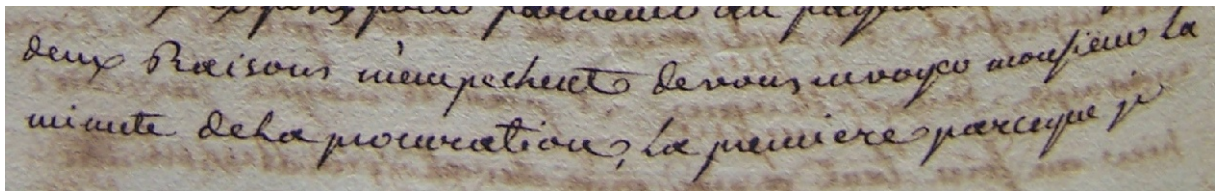 pour parvenir au
deux Raisons m'empechent de vous envoyer monsieur la
minute de la procuration, La premiere parceque je